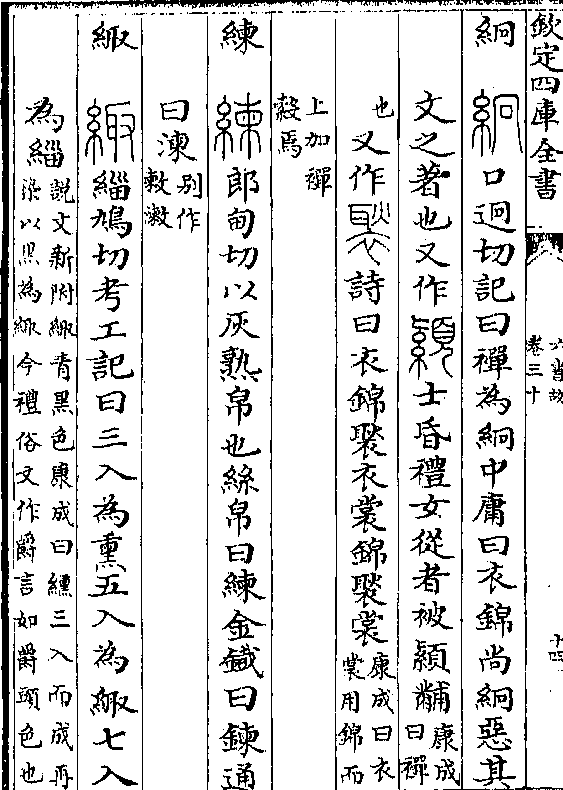 欽定四庫全書
六書故
卷三十
十四
絅 絅口迥切記曰襌為絅中庸曰衣錦尚絅惡其
文之著也又作顈士昏禮女從者被顈黼康成曰襌
也又作褧詩曰衣錦褧衣裳錦褧裳康成曰衣裳用錦而
上加襌縠焉
練 練郎甸切以灰熟帛也絲帛曰練金鐵曰鍊通
曰湅别作㪝漱
緅 緅緇鳩切考工記曰三入為熏五入為緅七入
為緇說文新附緅青黑色康成曰纁三入而成再染以黑為緅今禮俗文作爵言如爵頭色也